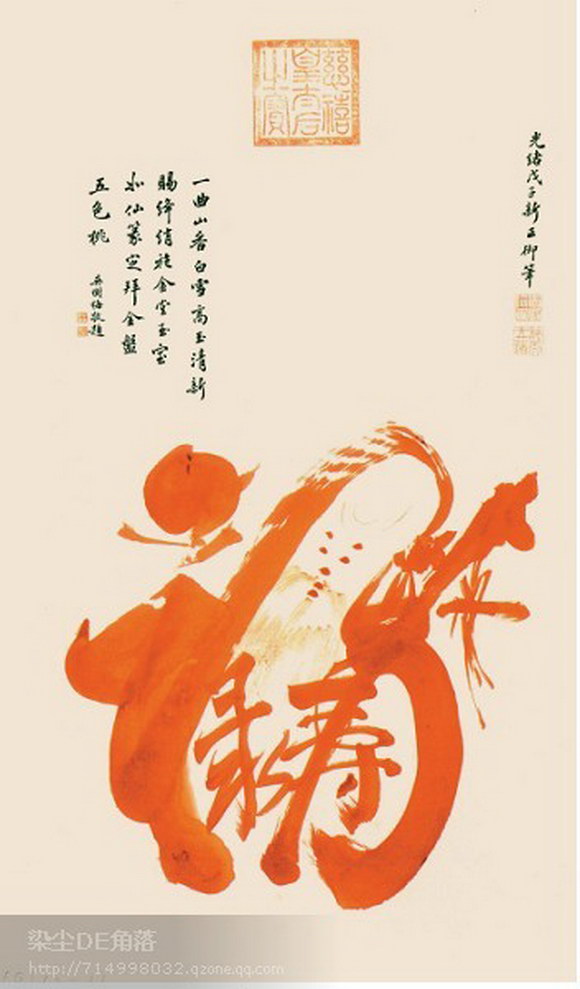 慈禧
皇太后
之寶
光緒戊子新正御筆
一曲山香白雪高玉清新
賜絳綃袍金堂玉室
如仙篆定拜金盤
五色桃
吳樹梅敬題
寿
染尘DE角落
http://714998032.qzone.qq.com